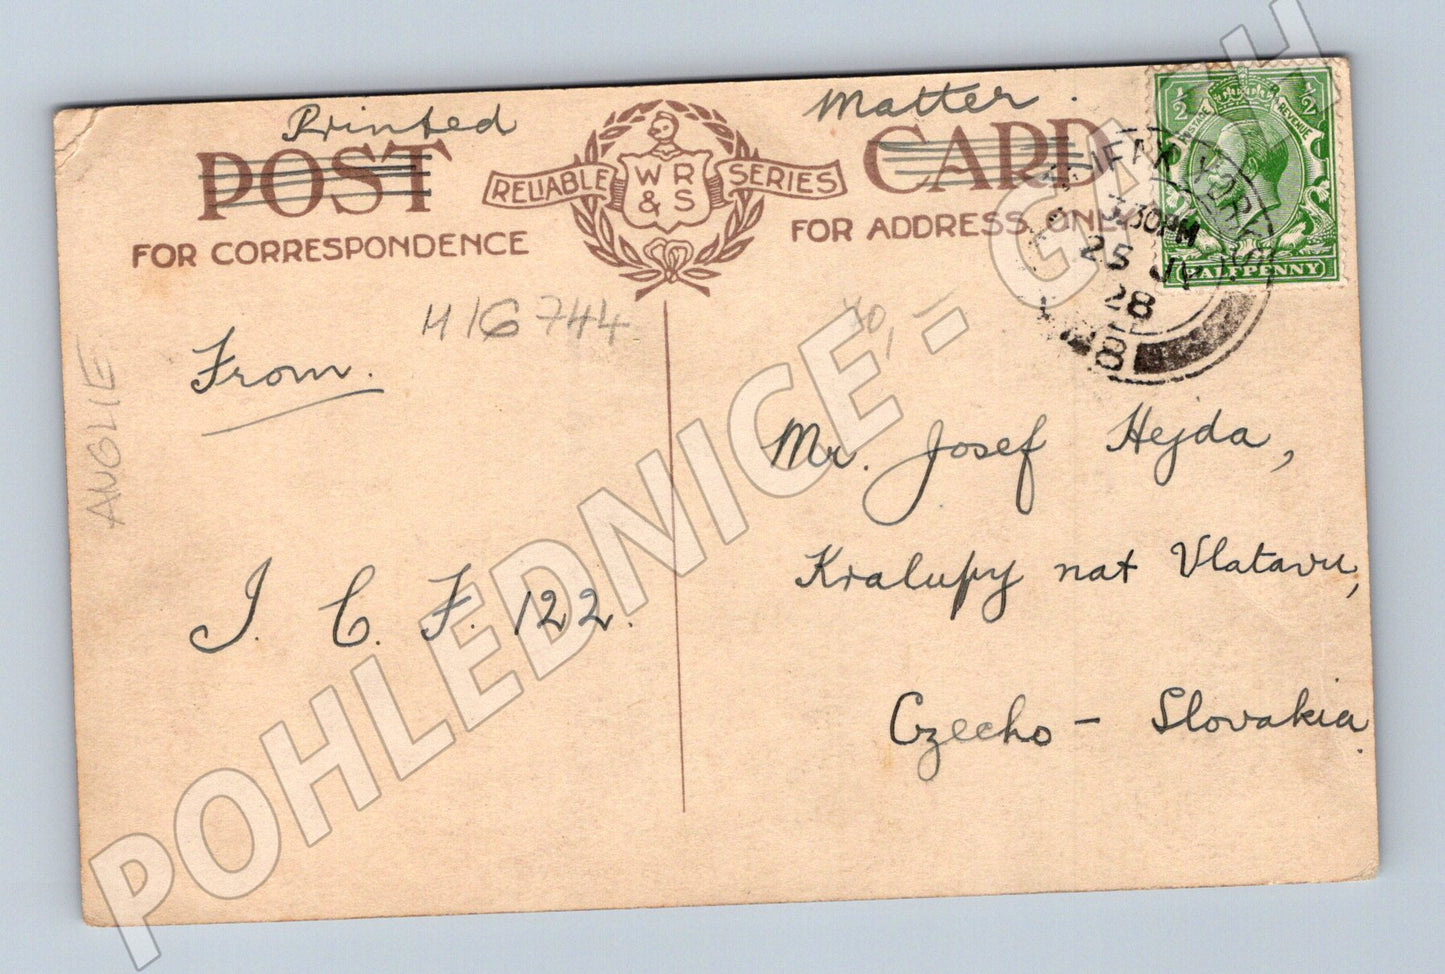 Printed Matter.
POST CARD
RELIABLE WR & S SERIES
FOR CORRESPONDENCE
FOR ADDRESS ONLY
½ ½
POSTAGE REVENUE
HALFPENNY
HALIFAX YORKS
3.30PM
25 JY
28
8
H16744
40,-
ANGLIE
From.
J. C. F. 122.
Mr. Josef Hejda,
Kralupy nat Vlatavu,
Czecho-Slovakia.
POHLEDNICE - GALAH